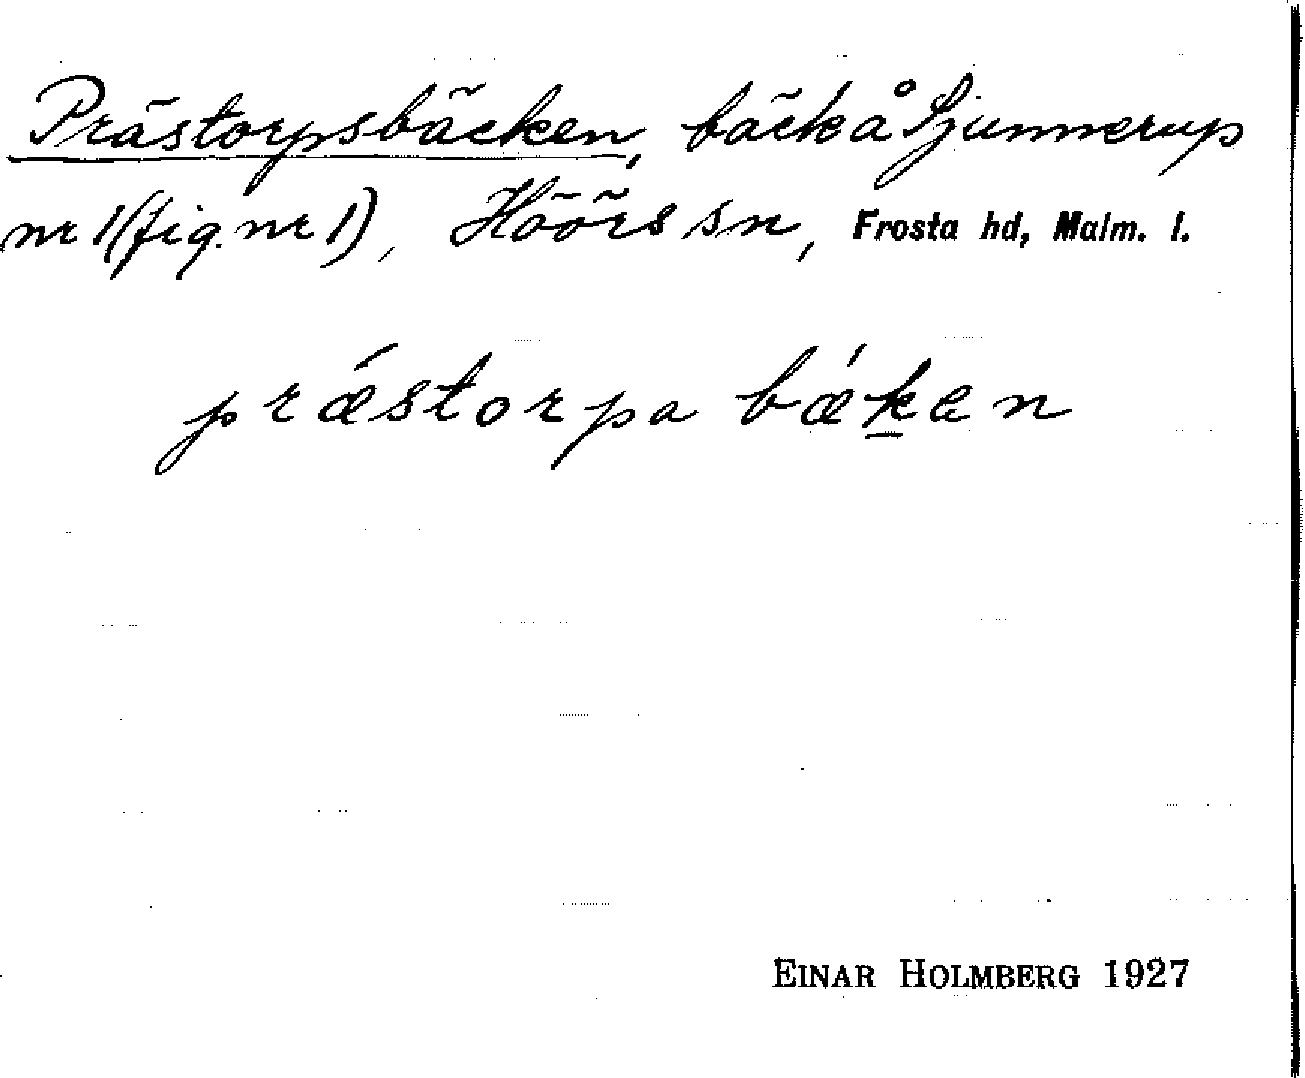 Prästorpsbäcken, bäck å Ljunnerup
nr 1 (fig. nr 1), Höörs sn, Frosta hd, Malm. l.
prǽstorpa bǽk̲en
EINAR HOLMBERG 1927